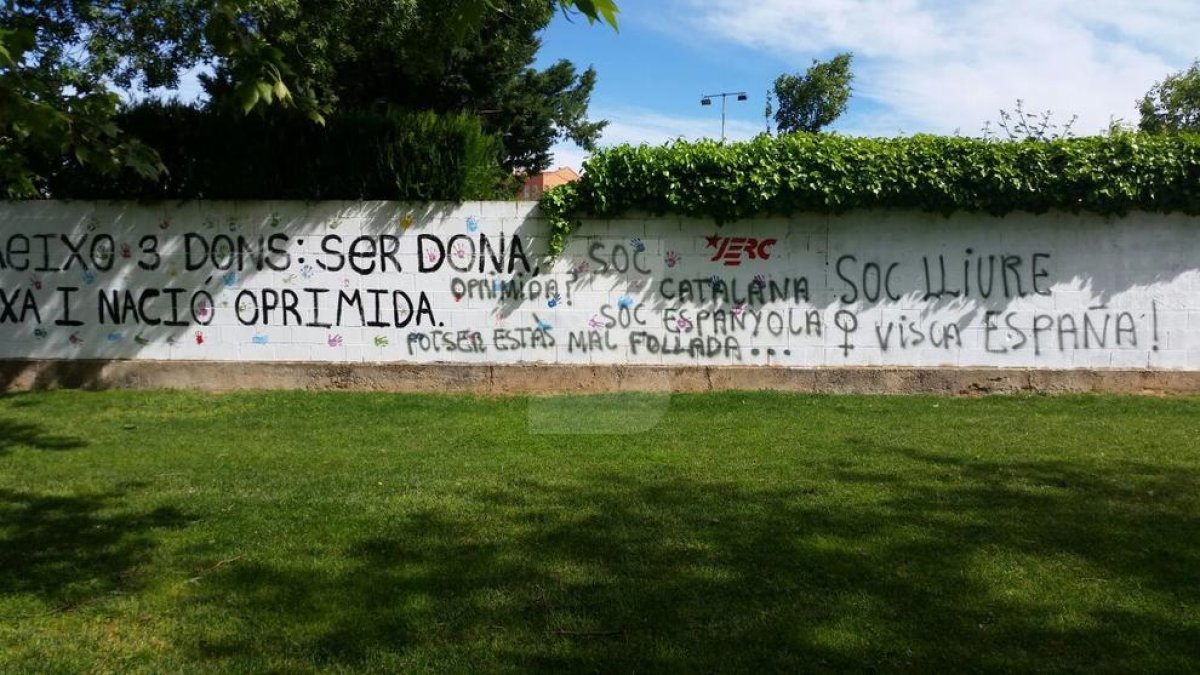 REIXO 3 DONS: SER DONA,
XA I NACIÓ OPRIMIDA.
JERC
SOC
OPRIMIDA?
CATALANA
SOC ESPANYOLA
SOC LLIURE
POTSER ESTÀS MAL FOLLADA...
VISCA ESPAÑA!